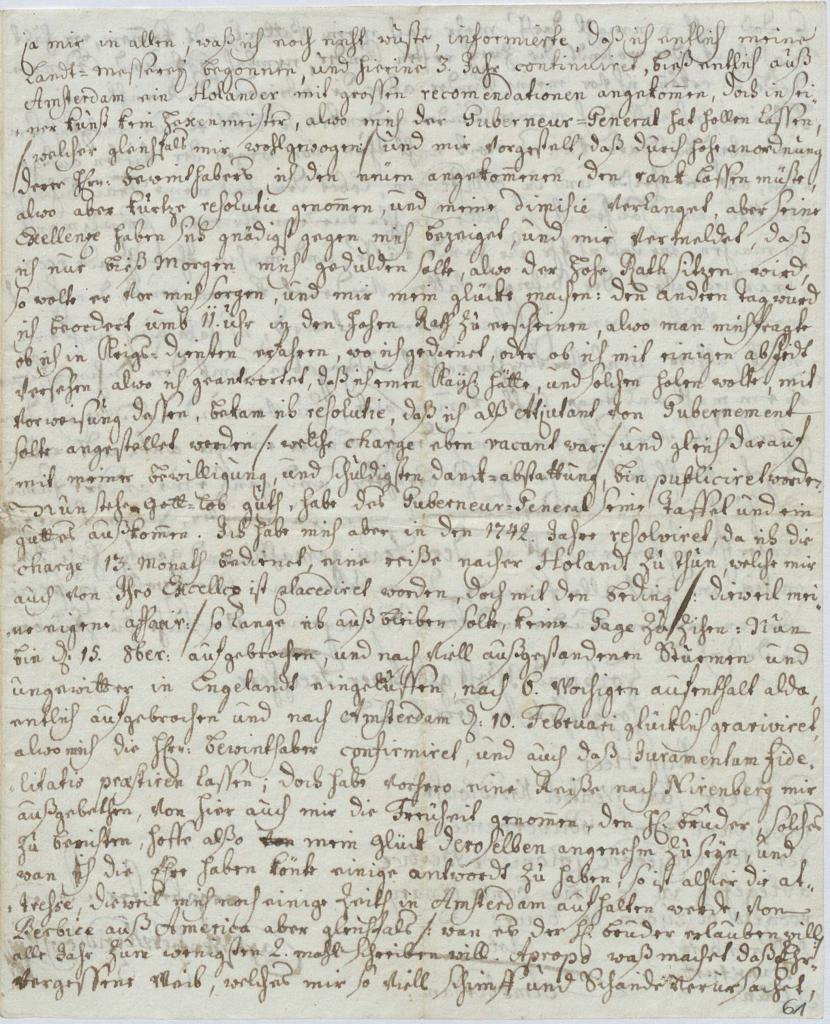 ja mir in allen, waß ich noch nicht wuste, informierte, daß ich entlich meine
Landt=messerey begonnen, und hierine 3. Jahr continuiret, bieß entlich auß
Amsterdam ein Holander mit grossen recomendationen angekomen, doch in sei-
ner kunst kein Hexenmeister, alwo mich der Guberneur=General hat hollen lassen,
/: welcher gleichfals mir wohlgewogen :/ und mir vorgestelt, daß durch hohe anordnung
derer Hrn: bewinthabers ich den neuen angekommenen, den rank lassen müste,
alwo aber kurtze resolutie genomen, und meine dimisie verlanget, aber seine
Excellence haben sich gnädigst gegen mich bezeiget, und mir vermeldet, daß
ich nur bieß Morgen mich gedulden solte, alwo der Hohe Rath sitzen wird,
so wolte er vor mich sorgen, und mir mein glücke machen: den andern tag wurd
ich beordert umb 11. uhr in den hohen Rath zu erscheinen, alwo man mich fragte
ob ich in Krigs=diensten erfahren, wo ich gedienet, oder ob ich mit einigen abschidt
versehen, alwo ich geantwortet, daß ich einen hätte, und solchen holen wolte, mit
vorweisung dessen, bekam ich resolutie, daß ich alß Atjutant von Gubernement
solte angestellet werden /: welche charge eben vacant war :/ und gleich darauf
mit meiner bewilligung, und schuldigsten danck=abstattung, bin publiciret worden.
Nun stehe Gott=lob guth, habe des Guberneur=General seine Taffel und ein
guttes außkomen. Ich habe mich aber in den 1742. Jahre resolviret, da ich die
charge 13. Monath bedienet, eine reiße nacher Holandt zu thun, welche mir
auch von Ihro Excellez ist placediret worden, doch mit den beding /: dieweil mei-
ne eigene affair :/ so lange ich auß bleiben solte, keine Gage zu zihen: Nun
bin d. 15. 8ber: aufgebrochen, und nach viell außgestandenen Sturmen und
ungewitter in Engelandt eingeluffen, nach 6. wochigen aufenthalt alda,
entlich aufgebrochen und nach Amsterdam d: 10. Februari glücklich gearriviret,
alwo mich die Hrn: bewinthaber confirmiret, und auch daß Juramentum fide-
litatis præstiren lassen; doch habe vorhero eine Reiße nach Nirenberg mir
außgebethen, von hier auch mir die Freiheit genomen, den H: bruder solches
zu berichten, hoffe alßo mein glück deroselben angenehm zu seyn, und
wan ich die Ehre haben könte einige antwordt zu haben, so ist alhier die at-
tresse, dieweil mich noch einige Zeith in Amsterdam aufhalten werde, von
Berbice auß America aber gleichfals /: wan es der H: bruder erlauben will :/
alle Jahr zum wenigsten 2. mahl schreiben will. Apropo waß machet daß Ehr-
vergessene Weib, welches mir so viell schimpf und Schande verursachet,
61